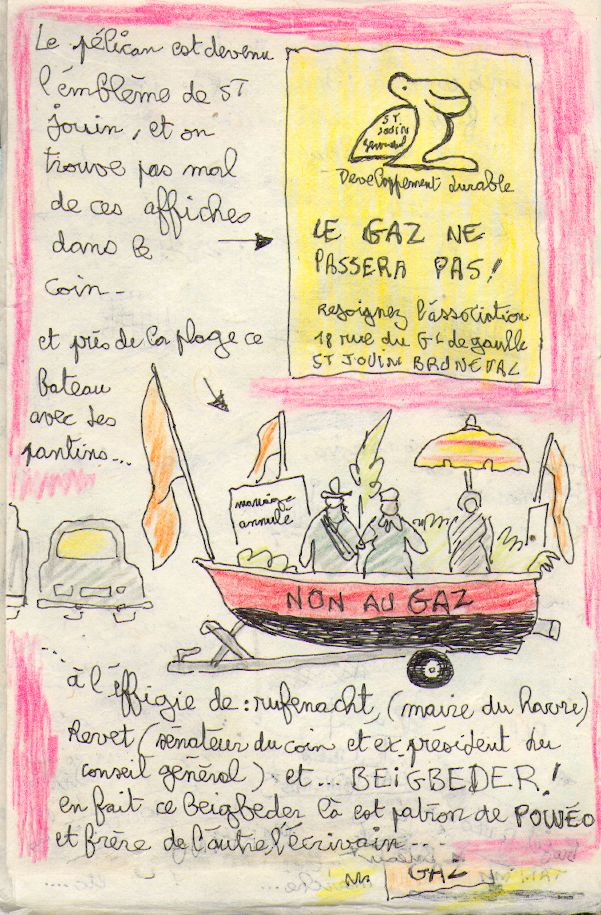 Le pélican est devenu
l'émblème de ST
Jouin, et on
trouve pas mal
de ces affiches
dans le
coin..
ST
JOUIN
Bruneval
Developpement durable
LE GAZ NE
PASSERA PAS!
Rejoignez l'association
18 rue du Gl de gaulle
ST JOUIN BRUNEVAL
et près de la plage ce
bateau
avec des
pantins...
mariage
annulé
NON AU GAZ
... à l'éffigie de : rufenacht, (maire du havre)
Revet (sénateur du coin et ex président du
conseil général) et... BEIGBEDER!
en fait ce Beigbeder là est patron de POWÉO
et frère de l'autre, l'écrivain....
GAZ